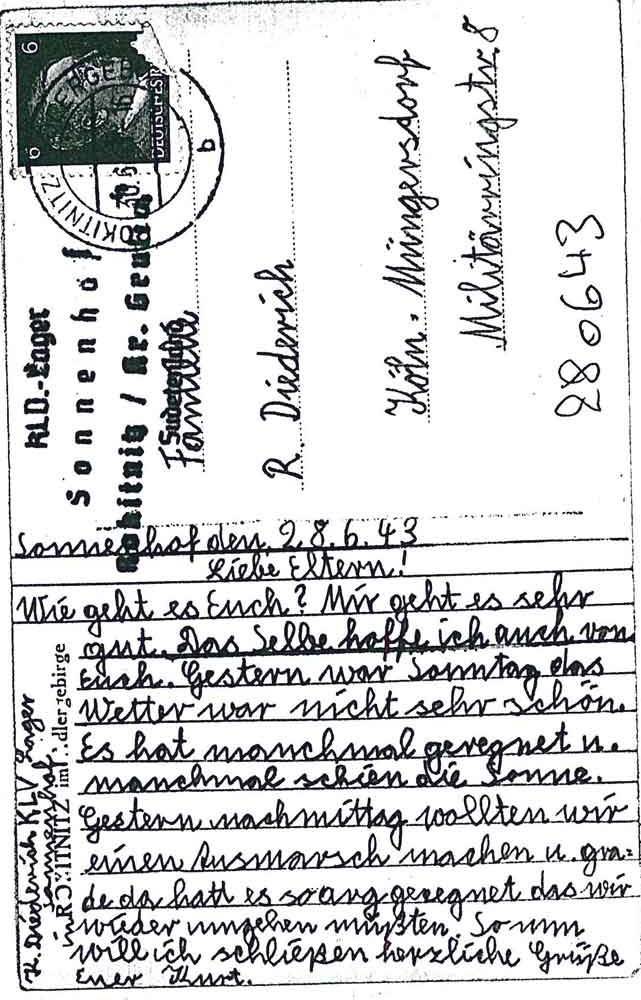 6
6
DEUTSCHES R
ROKITNITZ
b
KLV.-Lager
Sonnenhof
Rokitnitz / Kr. Grulich
Sudetenland
Familie
R. Diederich
Köln-Müngersdorf
Militärringstr. 8
280643
Sonnenhof den, 28.6.43
Liebe Eltern!
Wie geht es Euch? Mir geht es sehr
gut. Das Selbe hoffe ich auch von
Euch. Gestern war Sonntag das
Wetter war nicht sehr schön.
Es hat manchmal geregnet u.
manchmal schien die Sonne.
Gestern nachmittag wollten wir
einen Ausmarsch machen u. gra=
de da hatt es so arg geregnet das wir
wieder umgehen müßten. So nun
will ich schließen herzliche Grüße
Euer Kurt.
K. Diederich KLV Lager
Sonnenhof
in ROKITNITZ im Adlergebirge